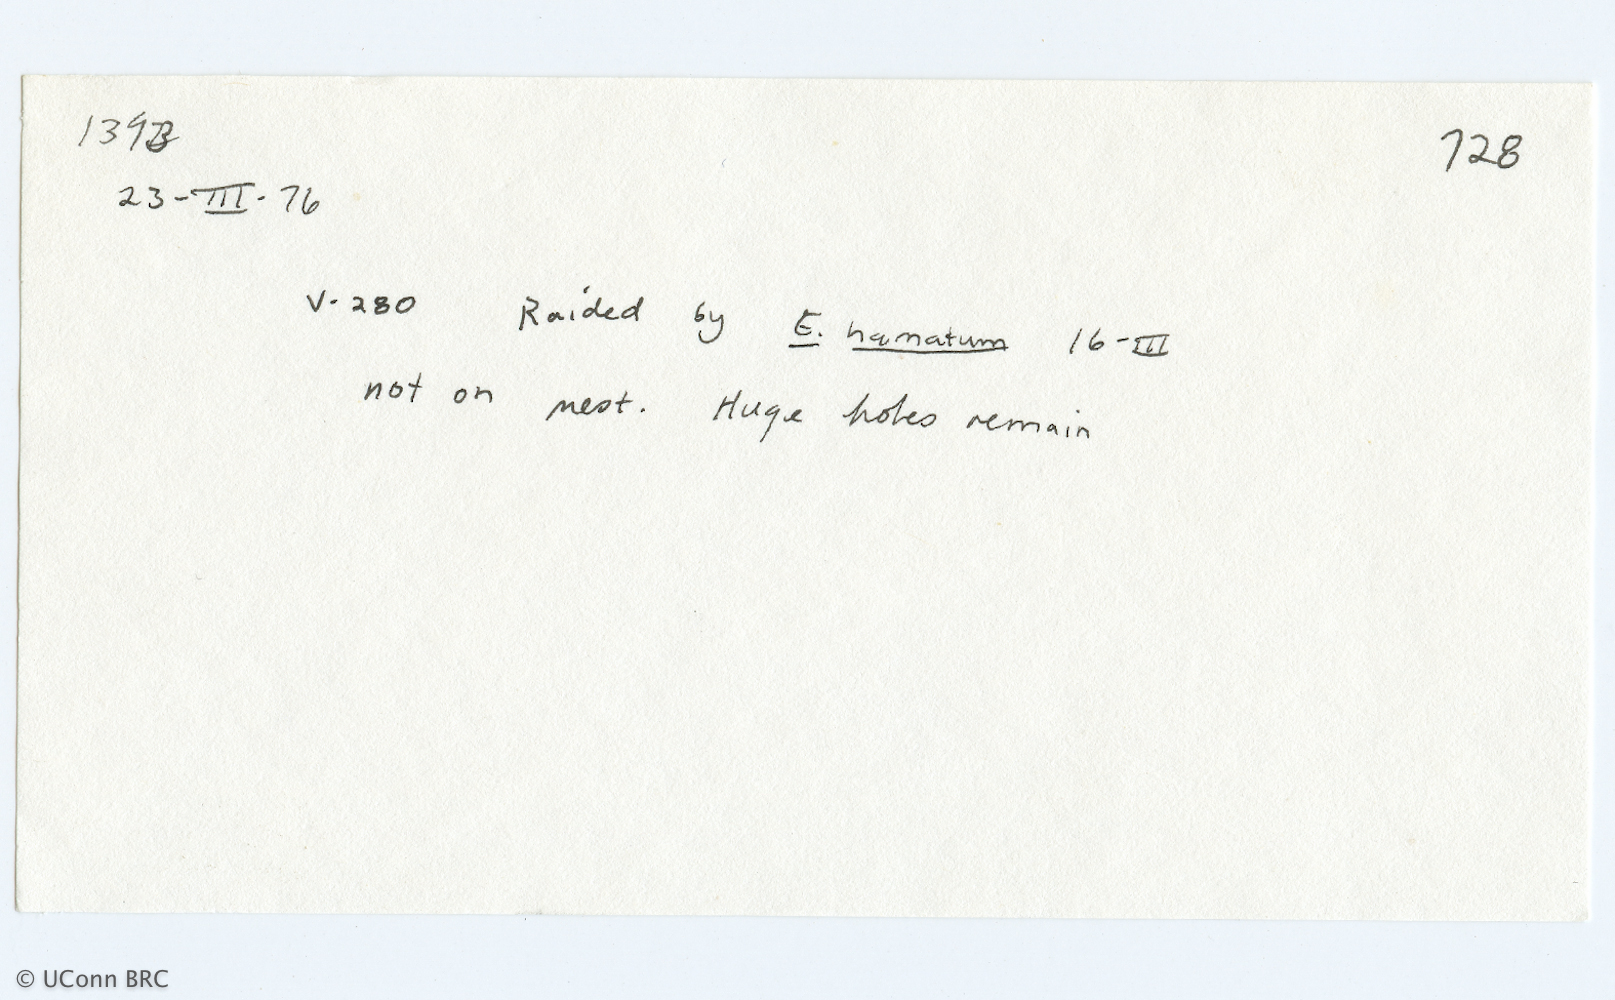 139B
728
23-III-76
V-280 Raided by E. hamatum 16-III
not on nest. Huge holes remain
© UConn BRC